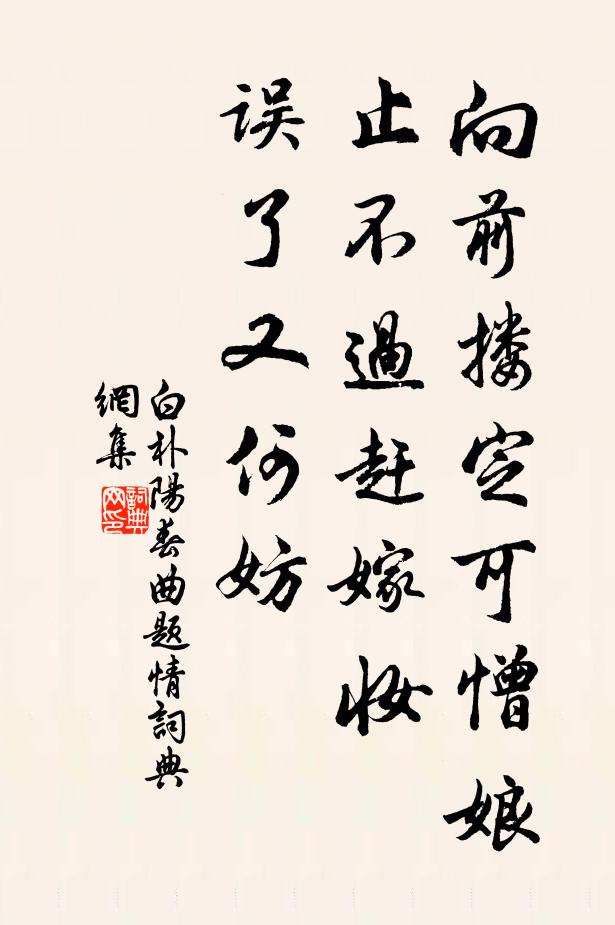 向前搂定可憎娘
止不過赶嫁妆
误了又何妨
白朴陽春曲题情詞典
網集
詞典
网印